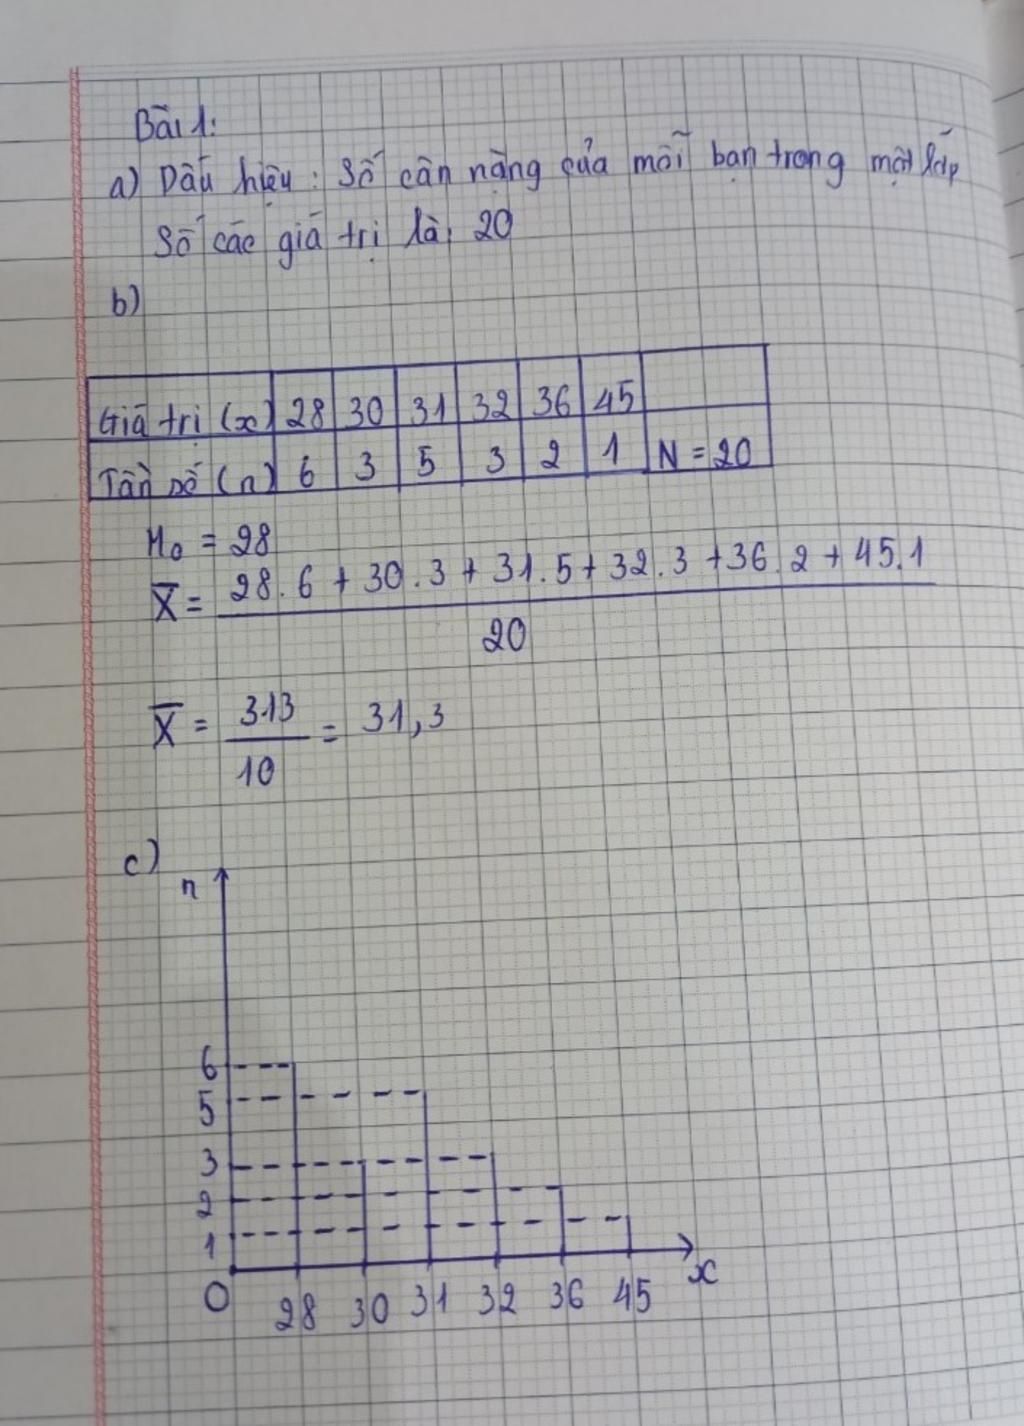 Bài 1:
a) Dấu hiệu: Số cân nặng của mỗi bạn trong một lớp
Số các giá trị là: 20
b)
Giá trị (x) 28 30 31 32 36 45
Tần số (n) 6 3 5 3 2 1 N = 20
M₀ = 28
X̅ = 28.6 + 30.3 + 31.5 + 32.3 + 36.2 + 45.1
20
X̅ = 313/10 = 31,3
c)
n
6
5
3
2
1
O 28 30 31 32 36 45 x